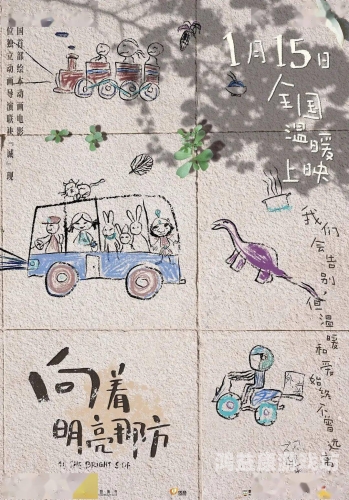 1月15日
全国
温暖
上映
国首部绘本动画电影
位独立动画导演联袂『诚』现
我们
会告别，
但温暖和爱
始终不曾远离
向着
明亮那方
TO THE BRIGHT SIDE